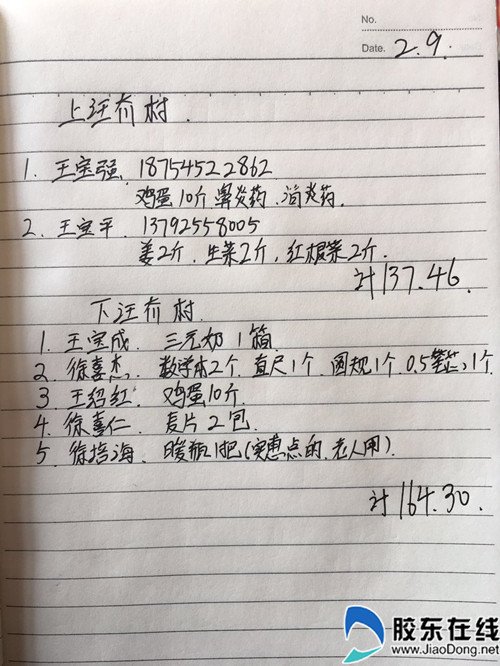 No.
Date. 2.9.
上汪夼村.
1. 王宝强. 18754522862
鸡蛋10斤 鼻炎药. 消炎药.
2. 王宝平. 13792558005
姜2斤. 生菜2斤, 红根菜2斤.
计137.46.
下汪夼村.
1. 王宝成. 三元奶1箱.
2. 徐喜杰. 数学本2个. 直尺1个. 圆规1个. 0.5笔芯1个.
3. 王绍红. 鸡蛋10斤.
4. 徐喜仁. 麦片2包.
5. 徐培海. 暖瓶1把(实惠点的. 老人用).
计164.30.
胶东在线
www.JiaoDong.net